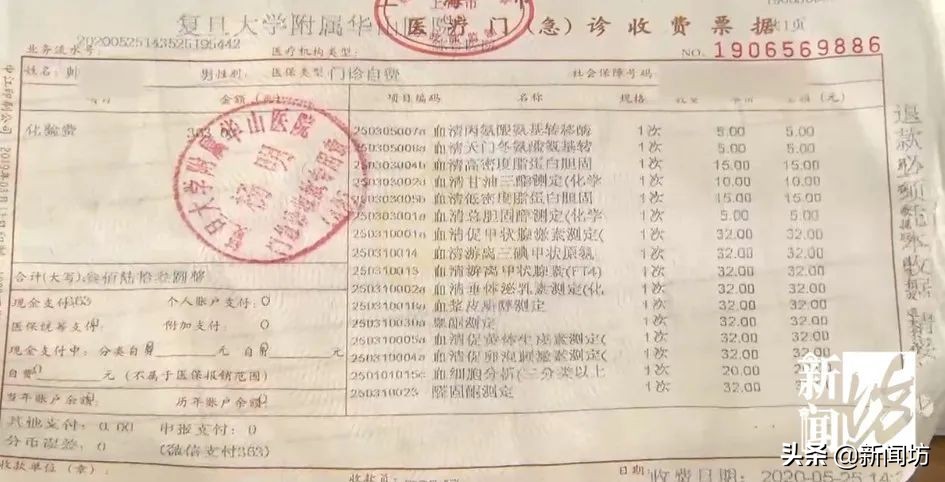 复旦大学附属华山医院
上海市
医疗门(急)诊收费票据
共1页
业务流水号:
20200525143525195442
医疗机构类型:
NO. 1906569886
姓名:
男性别:
医保类型:门诊自费
社会保障号码
金额(元)
项目编码 名称 规格 (元)
化验费
250305007a 血清丙氨酸氨基转移酶 1次 5.00 5.00
血清天门冬氨酸氨基转 1次 5.00 5.00
血清高密度脂蛋白胆固 1次 15.00 15.00
血清甘油三酯测定(化学 1次 10.00 10.00
血清低密度脂蛋白胆固 1次 15.00 15.00
血清总胆固醇测定(化学 1次 5.00 5.00
血清促甲状腺激素测定( 1次 32.00 32.00
250310014 血清游离三碘甲状原氨 1次 32.00 32.00
250310013 血清游离甲状腺素(FT4) 1次 32.00 32.00
血清垂体泌乳素测定(化 1次 32.00 32.00
血浆皮质醇测定 1次 32.00 32.00
睾酮测定 1次 32.00 32.00
血清促黄体生成素测定( 1次 32.00 32.00
血清促卵泡刺激素测定( 1次 32.00 32.00
血细胞分析(三分类以上 1次 20.00 20.00
250310023 醛固酮测定 1次 32.00 32.00
复旦大学附属华山医院
合计(大写):叁佰陆拾叁圆整
现金支付:363 个人账户支付:0
医保统筹支付:0 附加支付: 0
现金支付中: 分类自负 元 自负 元
自费0 元 (不属于医保报销范围)
当年账户余额: 历年账户余额:0
其他支付: 申报支付: 0
分币误差: 0 (微信支付363)
收款单位(章):
收款员
日期:
收费日期: 2020-05-25 14:
退款必须凭
新闻坊
头条 @新闻坊